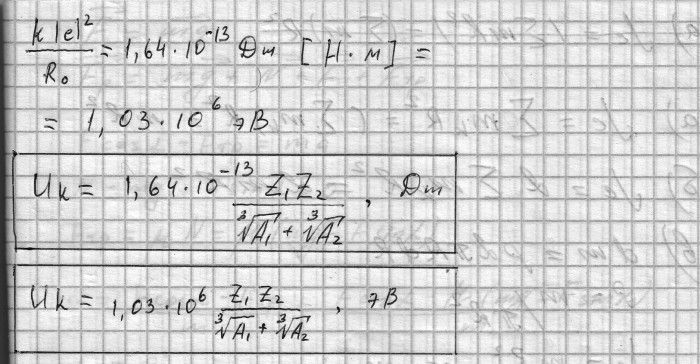 k|e|²/R₀ = 1,64·10⁻¹³ Дж [Н·м] =
= 1,03·10⁶ эВ
Uк = 1,64·10⁻¹³ Z₁Z₂/(∛A₁ + ∛A₂), Дж
Uк = 1,03·10⁶ Z₁Z₂/(∛A₁ + ∛A₂), эВ